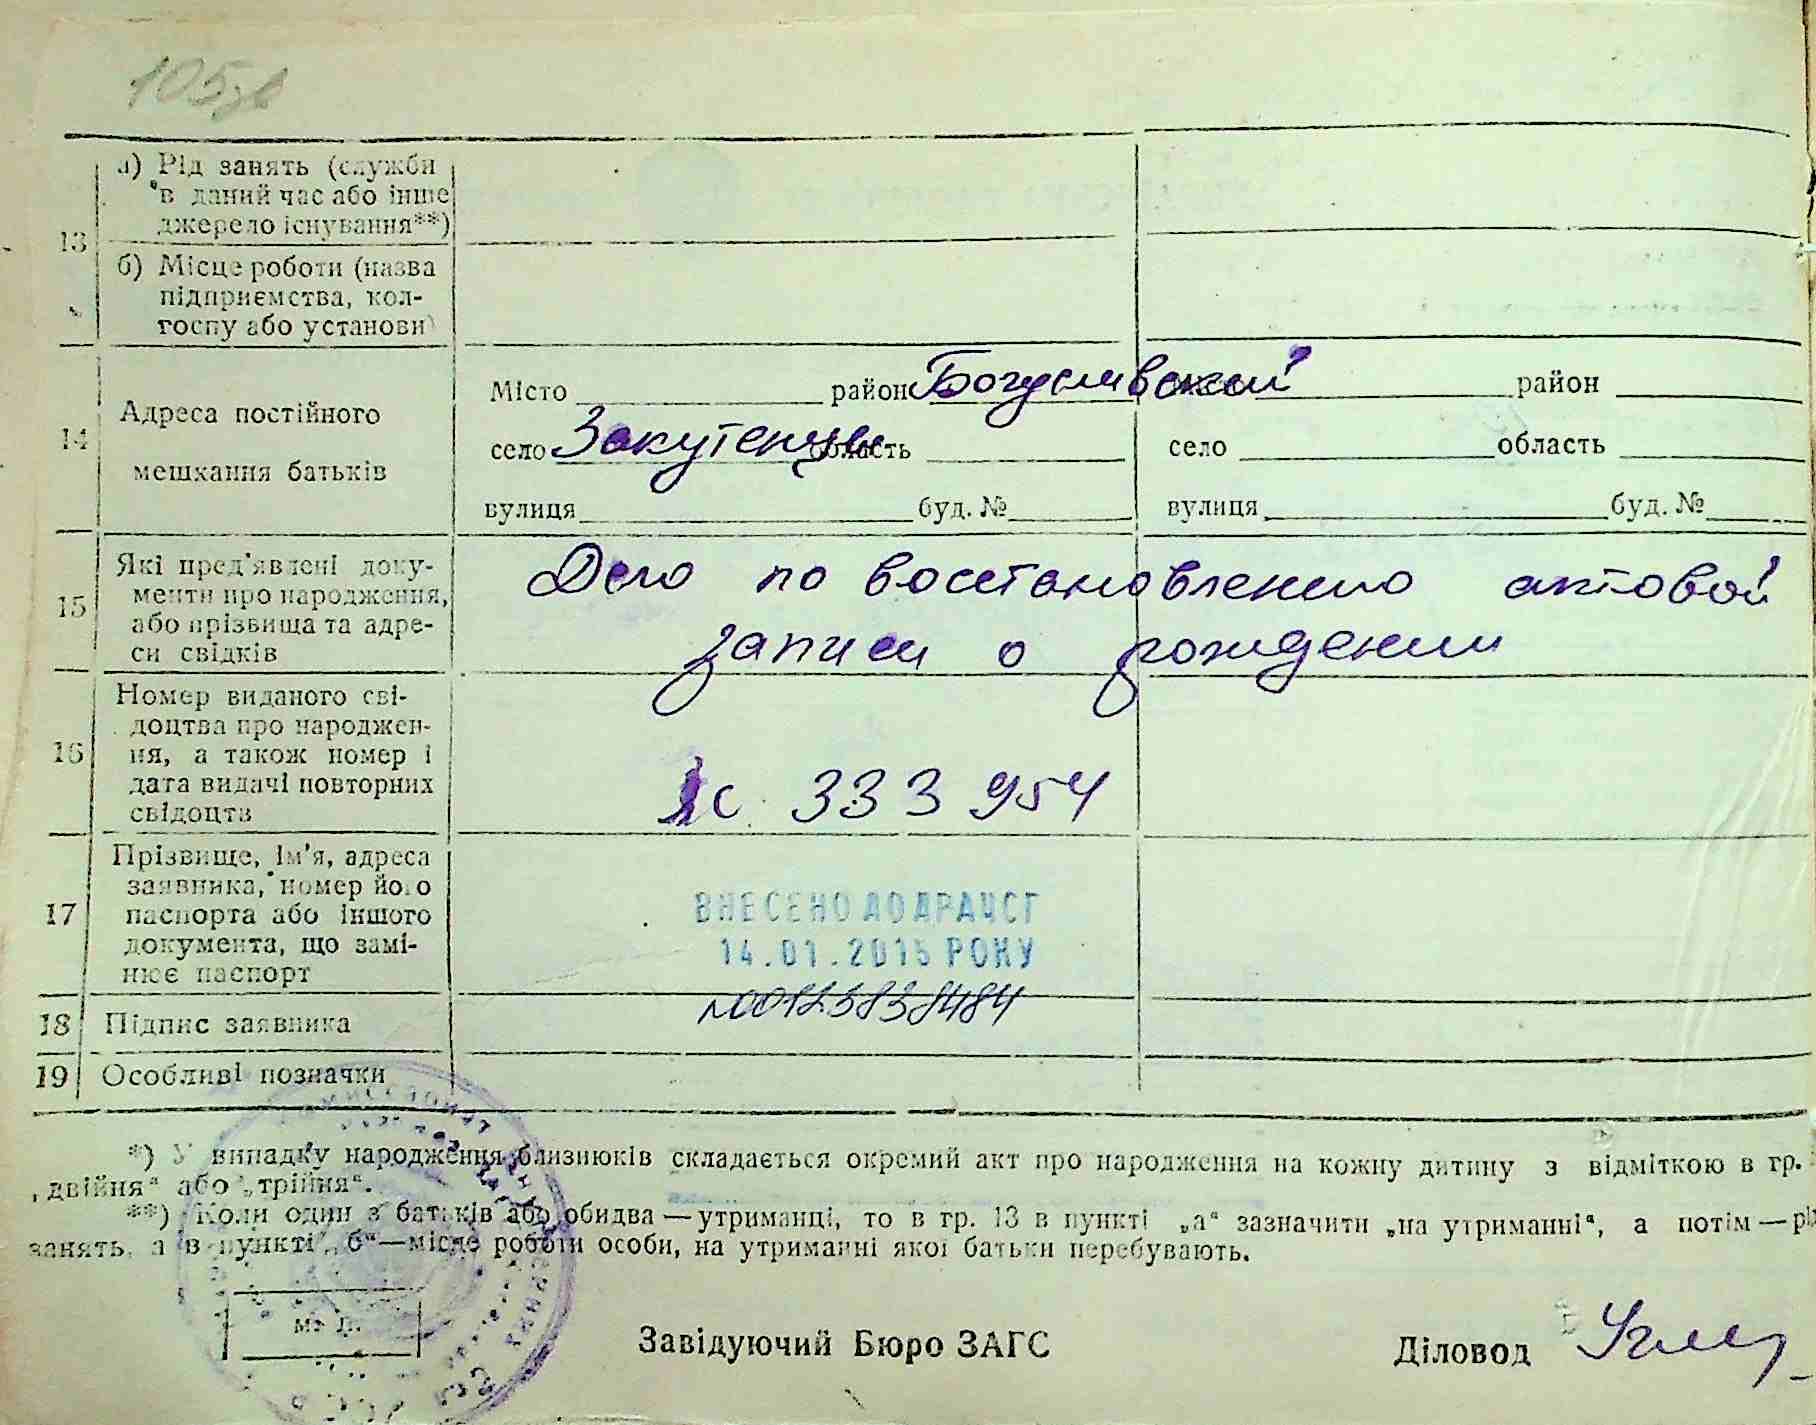 105зв
13
а) Рід занять (служби
в даний час або інше
джерело існування**)
б) Місце роботи (назва
підприємства, кол-
госпу або установи)
14
Адреса постійного
мешхання батьків
Місто район Богуславский район
село Закутенцы область село область
вулиця буд. № вулиця буд. №
15
Які пред'явлені доку-
менти про народження,
або прізвища та адре-
си свідків
Дело по восстановлению актовой
записи о рождении
16
Номер виданого сві-
доцтва про народжен-
ня, а також номер і
дата видачі повторних
свідоцтв
ІС 333954
17
Прізвище, ім'я, адреса
заявника, номер його
паспорта або іншого
документа, що замі-
нює паспорт
ВНЕСЕНО ДО ДРАЦСГ
14.01.2015 РОКУ
18 Підпис заявника
19 Особливі позначки
*) У випадку народження близнюків складається окремий акт про народження на кожну дитину з відміткою в гр.
„двійня“ або „трійня“.
**) Коли один з батьків або обидва — утриманці, то в гр. 13 в пункті „а“ зазначити „на утриманні“, а потім — рід
занять, а в пункті „б“ — місце роботи особи, на утриманні якої батьки перебувають.
М. П.
Завідуючий Бюро ЗАГС Діловод